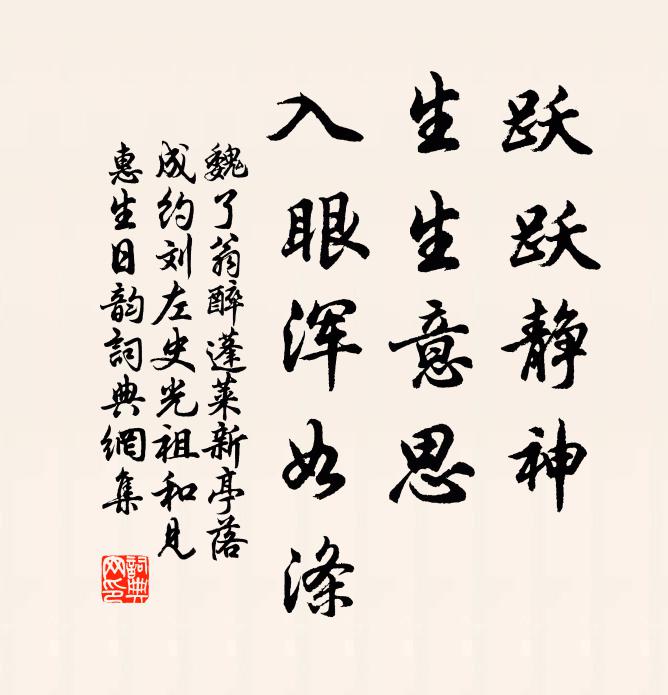 跃跃静神
生生意思
入眼浑如涤
魏了翁醉蓬莱新亭落
成约刘左史光祖和见
惠生日韵詞典網集
詞典
网印